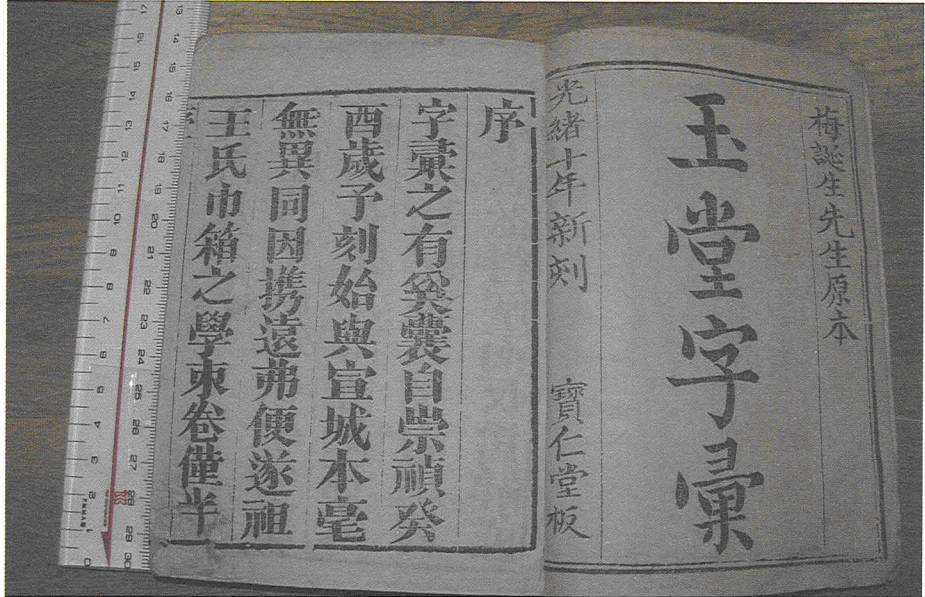 梅誕生先生原本
玉堂字彙
光緒十年新刻 寶仁堂板
序
字彙之有奚囊自崇禎癸
酉歲予刻始與宣城本毫
無異同因携遠弗便遂祖
王氏巾箱之學束卷僅半